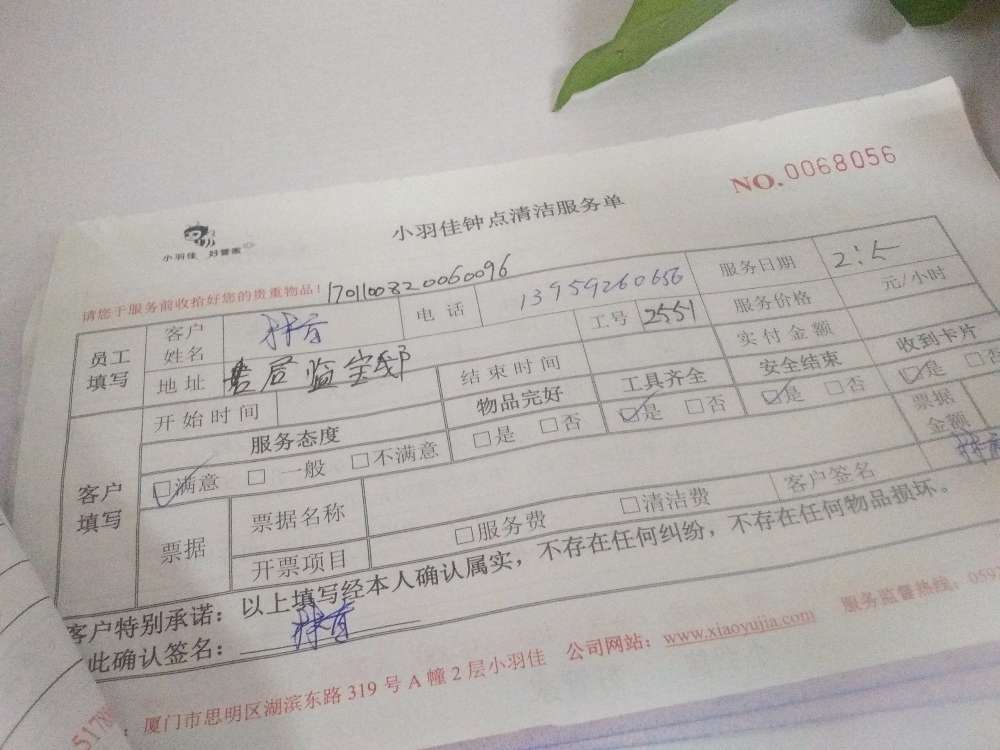 NO.0068056
小羽佳钟点清洁服务单
小羽佳 好管家
请您于服务前收拾好您的贵重物品！
1701100820060096
员工填写
客户姓名
电话 13959260656
服务日期 2:5
地址
工号 2551
服务价格 元/小时
客户填写
开始时间
结束时间
实付金额
服务态度
物品完好
工具齐全
安全结束
收到卡片
□满意 □一般 □不满意
□是 □否
□是 □否
□是 □否
□是 □否
票据
票据名称
票据金额
开票项目
□服务费 □清洁费
客户签名
客户特别承诺：以上填写经本人确认属实，不存在任何纠纷，不存在任何物品损坏。
此确认签名：
厦门市思明区湖滨东路319号A幢2层小羽佳 公司网站：www.xiaoyujia.com 服务监督热线：059